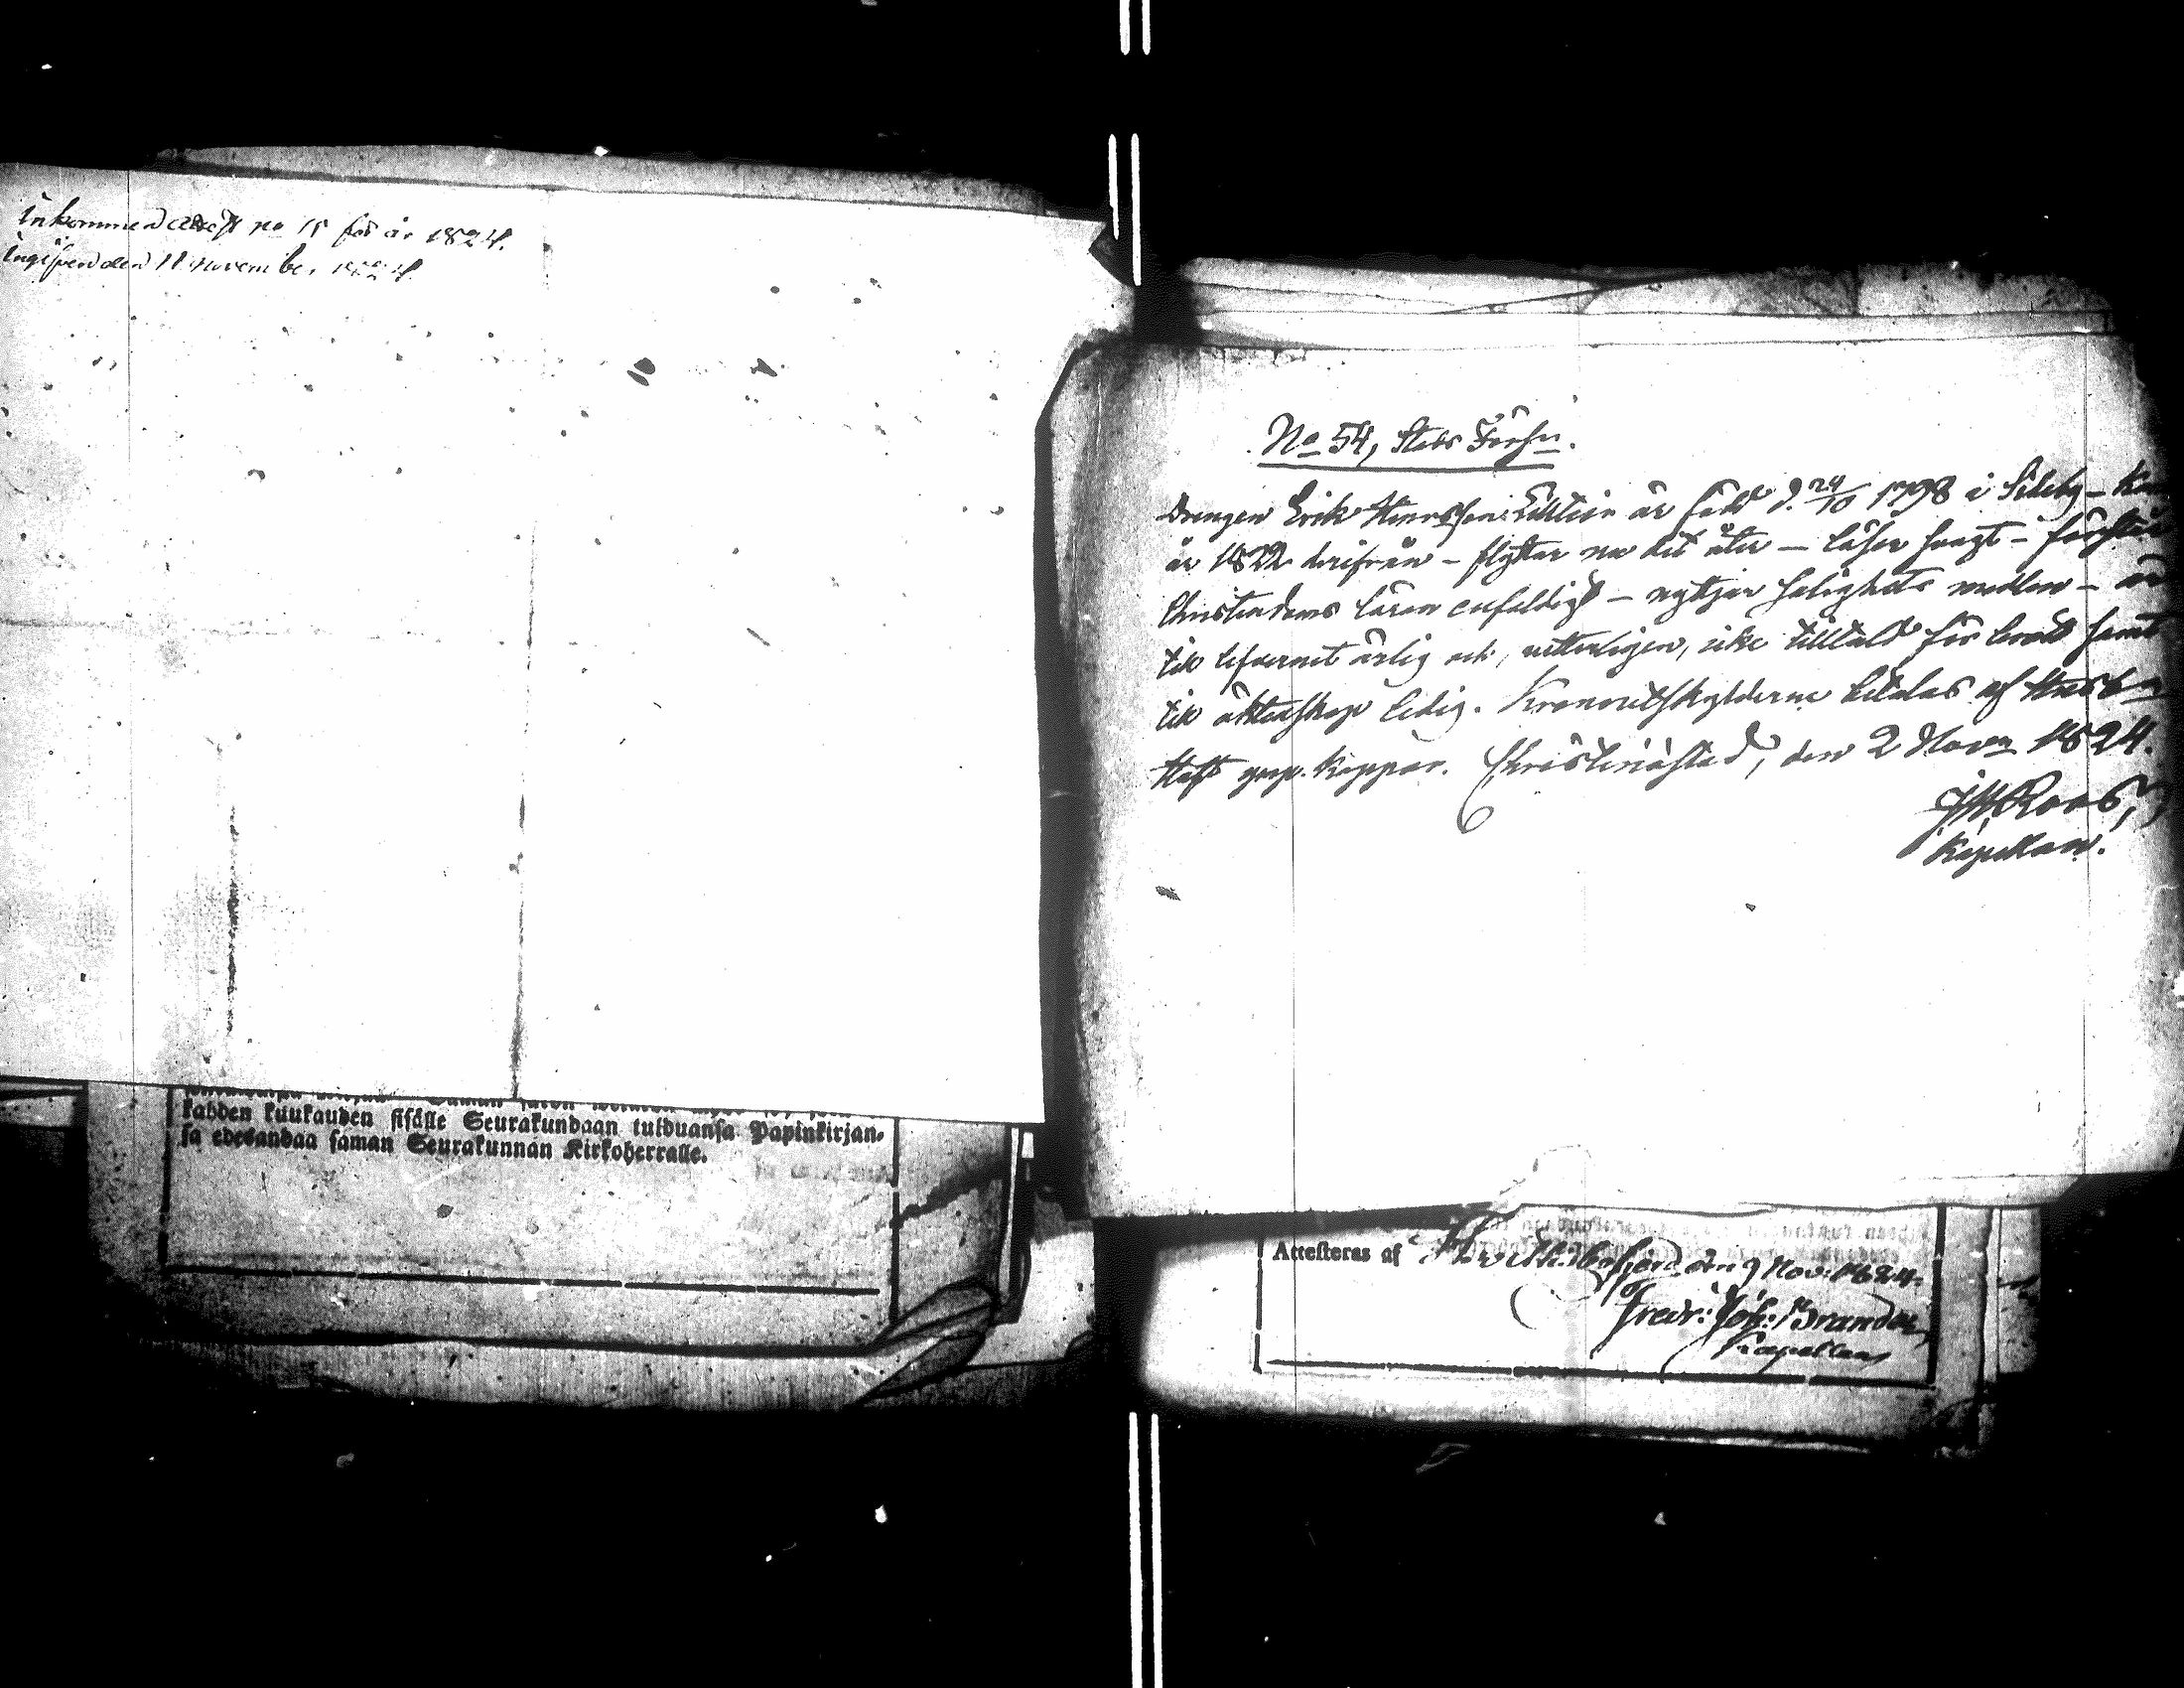 Inkommen attest no 15 för år 1824.
Ingifven den 11 November 1824.
kahden kuukauden sisälle Seurakundaan tulduansa Papinkirjan-
sa edesandaa saman Seurakunnan Kirkoherralle.
No 54, Stads Förs:n.
Drengen Erik Henrsson är född d. 24/10 1798 i Sideby – Kom
år 1822 derifrån – flyttar nu dit åter – läser svagt – förstår
Christendoms läran enfaldigt – nyttjar salighets medlen – är
till lefvernet ärlig och, veterligen, icke tilltald för brott samt
till äktenskap ledig. Kronoutskylderne betalas af
Christinæstad, den 2 Nov:r 1824.
Roos,
Kapellan.
Attesteras af den 9 Nov: 1824.
Fredr: Joh: Brander,
Kapellan